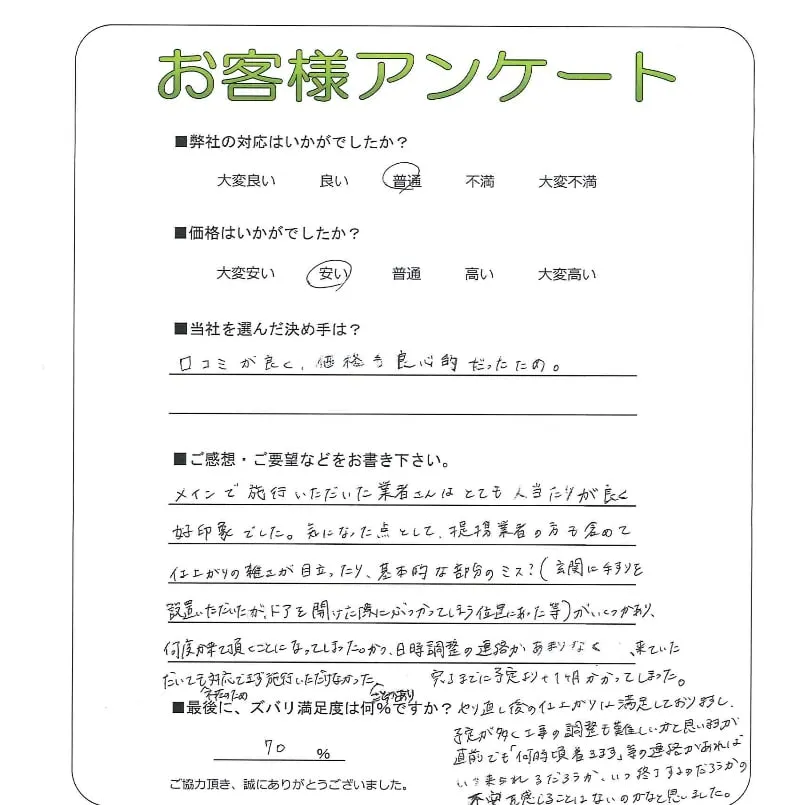 お客様アンケート
■弊社の対応はいかがでしたか？
大変良い 良い 普通 不満 大変不満
■価格はいかがでしたか？
大変安い 安い 普通 高い 大変高い
■当社を選んだ決め手は？
口コミが良く、価格も良心的だったため。
■ご感想・ご要望などをお書き下さい。
メインで施行いただいた業者さんはとても人当たりが良く
好印象でした。気になった点として、提携業者の方も含めて
仕上がりの雑さが目立ったり、基本的な部分のミス？(玄関に手すりを
設置いただいたが、ドアを開けた際にぶつかってしまう位置にあった等)がいくつかあり、
何度か来て頂くことになってしまった。かつ、日時調整の連絡があまりなく、来ていた
だいても対応できず施行いただけなかった 完了までに予定より+1ヶ月かかってしまった。
不在のため ことがあり
■最後に、ズバリ満足度は何％ですか？
70 ％
やり直し後の仕上がりは満足しておりますし、
予定が多く工事の調整も難しい方と思いますが
直前でも「何時頃着きます」等の連絡があれば
いつ来られるだろうか、いつ終了するのだろうかの
不安を感じることはないのかなと思いました。
ご協力頂き、誠にありがとうございました。